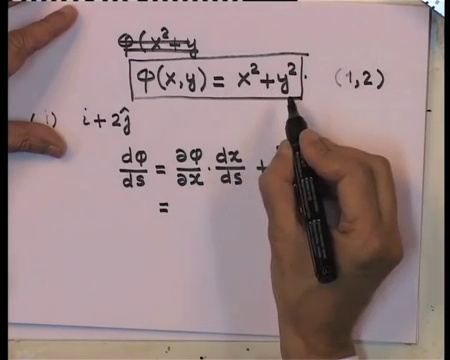 φ(x²+y
φ(x,y) = x²+y². (1,2)
(i) i+2ĵ
dφ/ds = ∂φ/∂x · dx/ds +
=